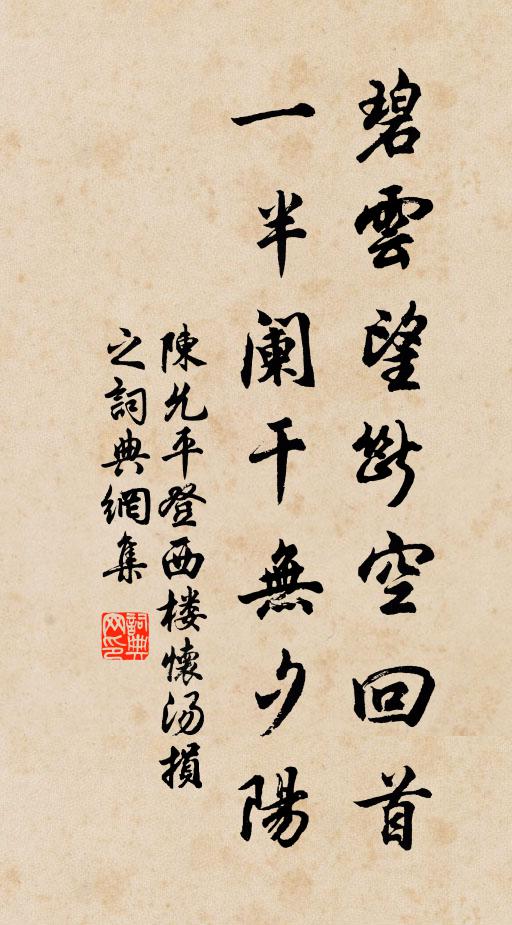 碧雲望斷空回首
一半闌干無夕陽
陳允平登西楼懷汤損
之詞典網集
詞典网印